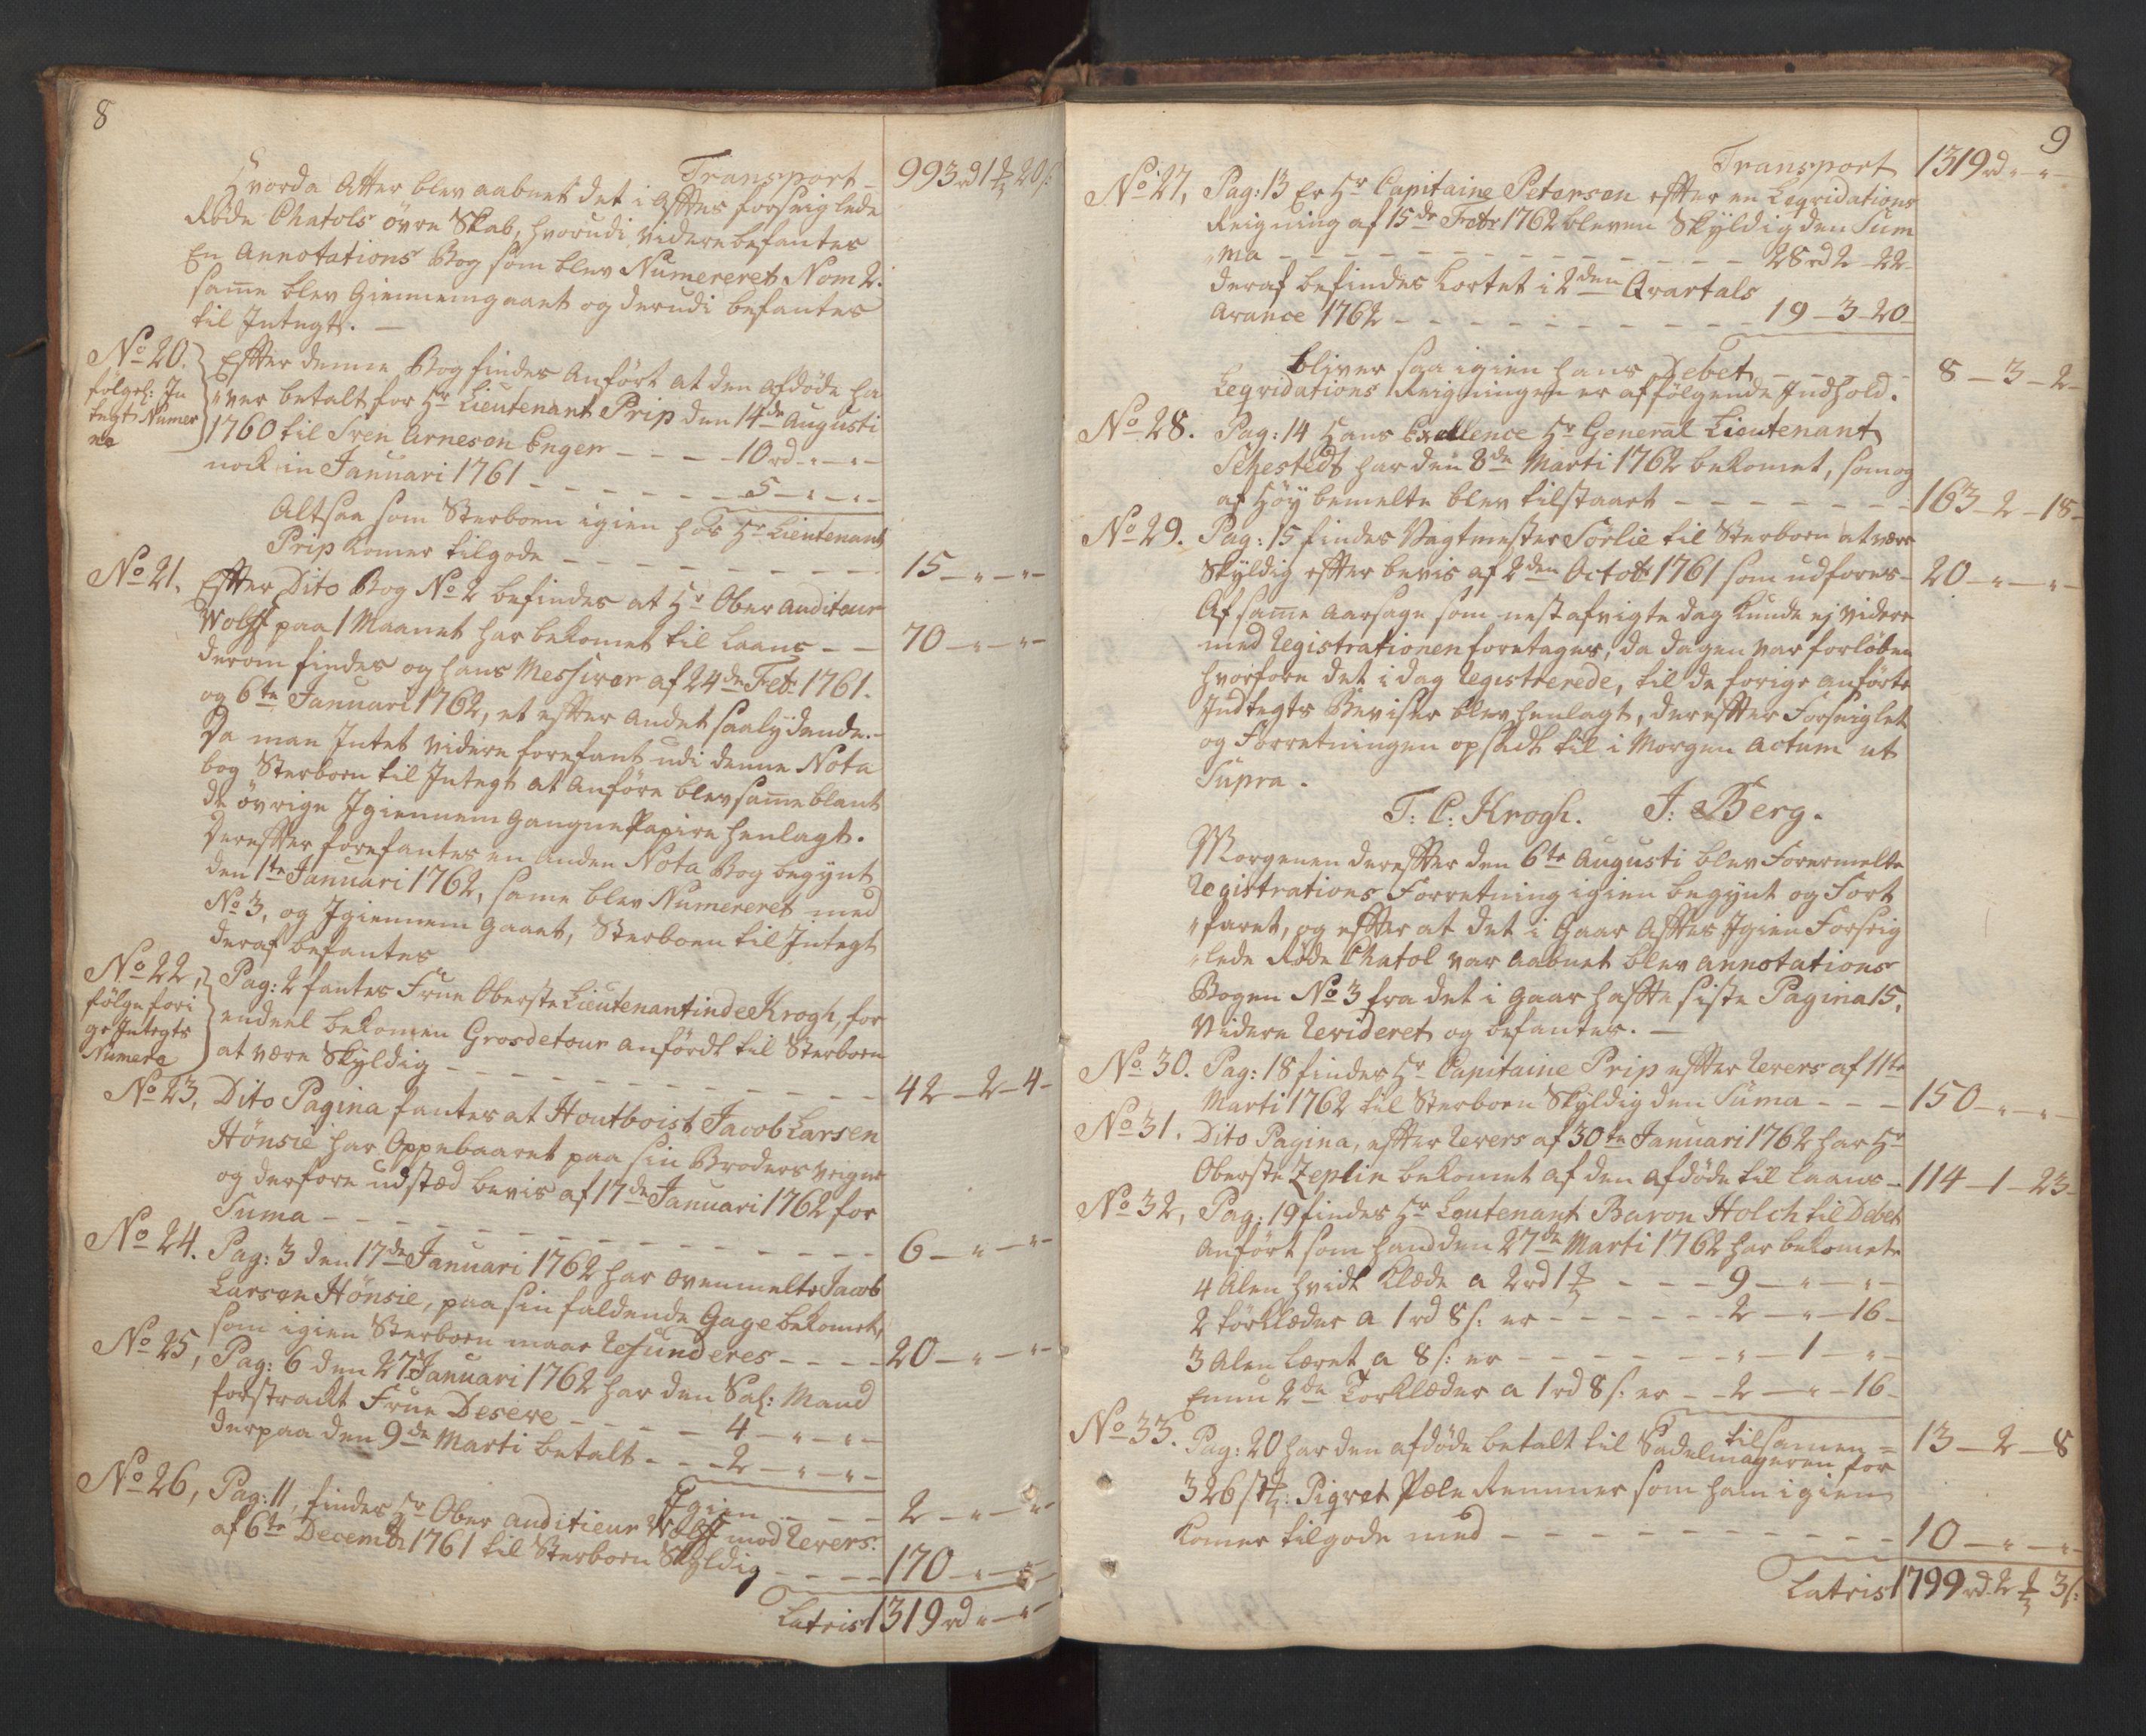 8
Transport - 993 rd 1 ₰ 20 s:
Hvorda Atter blev aabnet det i Afftes forseiglede
Røde Chatols övre Skab, hvorudi videre befantes
En Annotations Bog som blev Numereret Nom 2.
same blev Giennemgaaet og derudi befantes
til Integt. —
No 20.
følgel: In
tegt Numer
ne
Effter denne Bog findes Anført at den afdøde ha
"ver betalt for Hr Lieutenant Prip den 14de Augusti
1760 til Sven Arnesen Enger - - - - 10 rd „ - „ -
nock in Januari 1761 - - - - - - - 5 - „ - „ -
Altsaa som Sterboen igien hos Hr Lieutenant
Prip komer tilgode - - - - - - - - - 15 - „ - „ -
No 21. Effter Dito Bog No 2 befindes at Hr Ober Auditeur
Wolff paa 1 Maanet har bekomet til Laans - - 70 - „ - „ -
derom findes og hans Messiver af 24de Febr: 1761.
og 6te Januari 1762, et effter andet saalydende. -
Da man Intet videre forefant udi denne Nota
bog Sterboen til Integt at Anføre blev same blant
de övrige Igiennem Gangne Papire henlagt.
Dereffter forefantes en Anden Nota Bog begynt
den 1te Januari 1762, same blev Numereret med
No 3, og Igiennem Gaaet, Sterboen til Integt
deraf befantes
No 22,
følge fori
ge Integts
Numera
Pag: 2 fantes Frue Oberste Lieutenantinde Krogh, for
endeel bekomen Grosdetour anfördt til Sterboen
at være Skyldig - - - - - - - - - - - - 42 - 2 - 4 -
No 23, Dito Pagina fantes at Houtboist Jacob Larsen
Hönsie har Oppebaaret paa sin Broders veigne
og derfore udstæd bevis af 17de Januari 1762 for
Suma - - - - - - - - - - - - - - - 6 - „ - „ -
No 24. Pag: 3 den 17de Januari 1762 har ovenmelte Jacob
Larsen Hönsie, paa sin faldende Gage bekomet,
som igien Sterboen maae Refunderes - - - - 20 - „ - „ -
No 25, Pag: 6 den 27 Januari 1762 har den Sal: Mand
forstrackt Frue Desere - - - - - 4 - „ - „ -
derpaa den 9de Marti betalt - - - 2 - „ - „ -
Igien - - - - - 2 - „ - „ -
No 26, Pag: 11, findes Hr Ober Auditieur Wolff mod Revers.
af 6te Decembr 1761 til Sterboen Skyldig - - - - 170 - „ - „ -
Latris 1319 rd „ - „ -
9
Transport 1319 rd „ - „ -
No 27, Pag: 13 Er Hr Capitaine Petersen effter en Leqvidations
Reigning af 15de Febr 1762 bleven Skyldig den Sum
"ma - - - - - - - - - - - - - 28 rd 2 - 22 -
deraf befindes kortet i 2den Qvartals
Avance 1762 - - - - - - - - - - 19 - 3 - 20 -
bliver saa igien hans Debet - - - - - 8 - 3 - 2 -
Leqvidations Reigningen er af følgende Indhold.
No 28. Pag: 14 Hans Exellence Hr General Lieutenant
Schestedt har den 8de Marti 1762 bekomet, som og
af Höy bemelte blev tilstaaet - - - - - - - 163 - 2 - 18 -
No 29. Pag: 15 findes Vagtmester Sörlie til Sterboen at være
Skyldig effter bevis af 2den Octobr 1761 som udföres - 20 - „ - „ -
Af same Aarsage som nest afvigte dag kunde ej videre
med Registrationen foretages, da dagen var forløben
hvorfore det i dag Registrerede, til de forige anförte
Indtegts Beviser blev henlagt, dereffter Forseiglet
og Forretningen opsadt til i Morgen Actum ut
Supra.
T: C: Krogh. J: Berg.
Morgenen dereffter den 6te Augusti blev Forermelte
Registrations Forretning igien begynt og Fort
"faret, og effter at det i Gaar Afftes Igien Forseig
"lede Røde Chatol var Aabnet blev Annotations
Bogen No 3 fra det i Gaar haffte siste Pagina 15,
Videre Revideret og befantes. —
No 30. Pag: 18 findes Hr Capitaine Prip effter Revers af 11te
Marti 1762 til Sterboen Skyldig den Suma - - - 150 - „ - „ -
No 31. Dito Pagina, effter Revers af 30te Januari 1762 har Hr
Oberste Zeplin bekomet af den Afdöde til Laans - 114 - 1 - 23 -
No 32, Pag: 19 findes Hr Leutenant Baron Holch til Debet
Anfört som hand den 27de Marti 1762 har bekomet
4 Alen hvidt Klæde a 2 rd 1 ₰ - - - 9 - „ - „ -
2 törklæder a 1 rd 8 s: er - - - - - - 2 - „ - 16 -
3 Alen Læret a 8 s: er - - - - - - - „ - 1 - „ -
Ennu 2de Torklæder a 1 rd 8 s: er - - 2 - „ - 16 -
tilsamen = 13 - 2 - 8
No 33. Pag: 20 har den afdöde betalt til Sadelmageren for
326 st: Piqvet Pæle Remmer som ham igien
komer tilgode med - - - - - - - - - - - 10 - „ - „ -
Latris 1799 rd 2 ₰ 3 s: